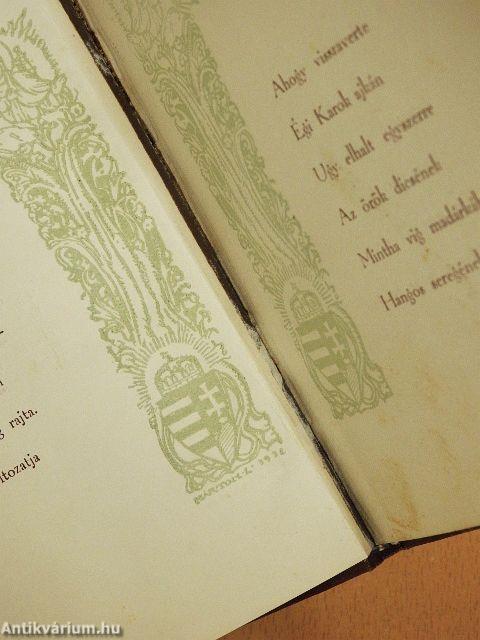 g rajta.
ltozatja
MÁRTON L. 1938
Ahogy visszaverte
Égi Karok ajkán
Ugy elhalt egyszerre
Az örök dicsének
Mintha vig madárkák
Hangos seregének
Antikvárium.hu